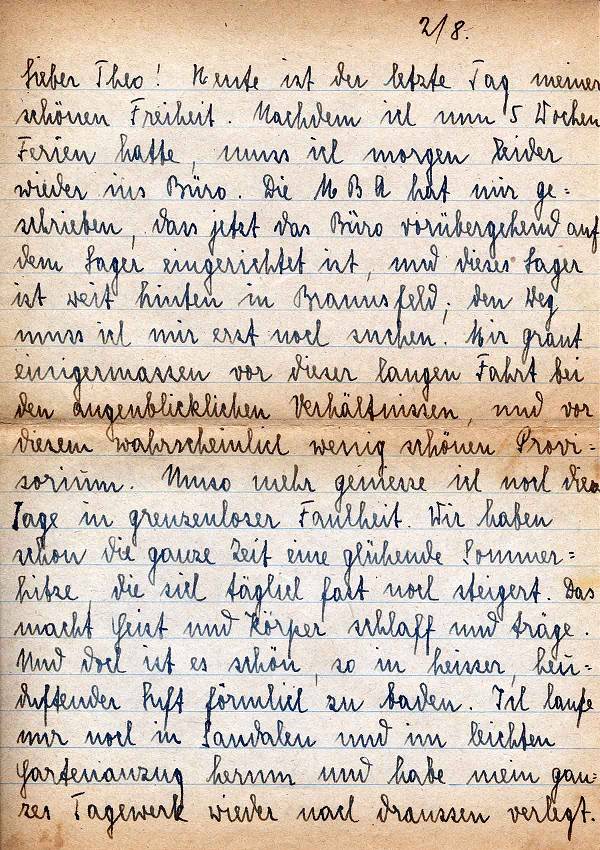 2/8.
Lieber Theo! Heute ist der letzte Tag meiner
schönen Freiheit. Nachdem ich nun 5 Wochen
Ferien hatte, muss ich morgen leider
wieder ins Büro. Die MBA hat mir ge=
schrieben, dass jetzt das Büro vorübergehend auf
dem Lager eingerichtet ist, und dieses Lager
ist weit hinten in Braunsfeld; den Weg
muss ich mir erst noch suchen. Mir graut
einigermassen vor dieser langen Fahrt bei
den augenblicklichen Verhältnissen, und vor
diesem wahrscheinlich wenig schönen Provi-
sorium. Umso mehr geniesse ich noch die
Tage in grenzenloser Faulheit. Wir haben
schon die ganze Zeit eine glühende Sommer=
hitze, die sich täglich fast noch steigert. Das
macht Geist und Körper schlaff und träge.
Und doch ist es schön, so in heisser, heu=
duftender Luft förmlich zu baden. Ich laufe
nur noch in Sandalen und im leichten
Gartenanzug herum und habe mein gan=
zes Tagewerk wieder nach draussen verlegt.